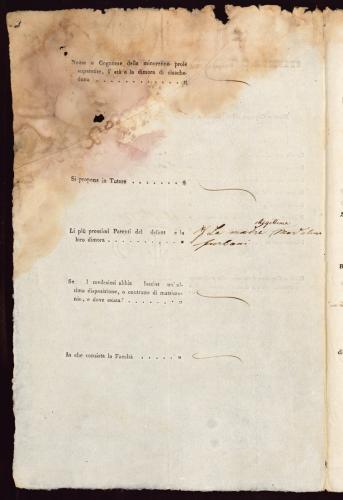 Nome e Cognome della minorenne prole
superstite, l' età e la dimora di ciasche-
duno . . . . . . . . . . . . . "
Si propone in Tutore . . . . . . . "
Li più prossimi Parenti del defont e la
loro dimora . . . . . . . . . . . "
La madre
furlani
Se i medesimi abbia lasciat un' ul-
tima disposizione, o contratto di matrimo-
nio, e dove esista? . . . . . . . . "
In che consiste la Facoltà . . . . . "